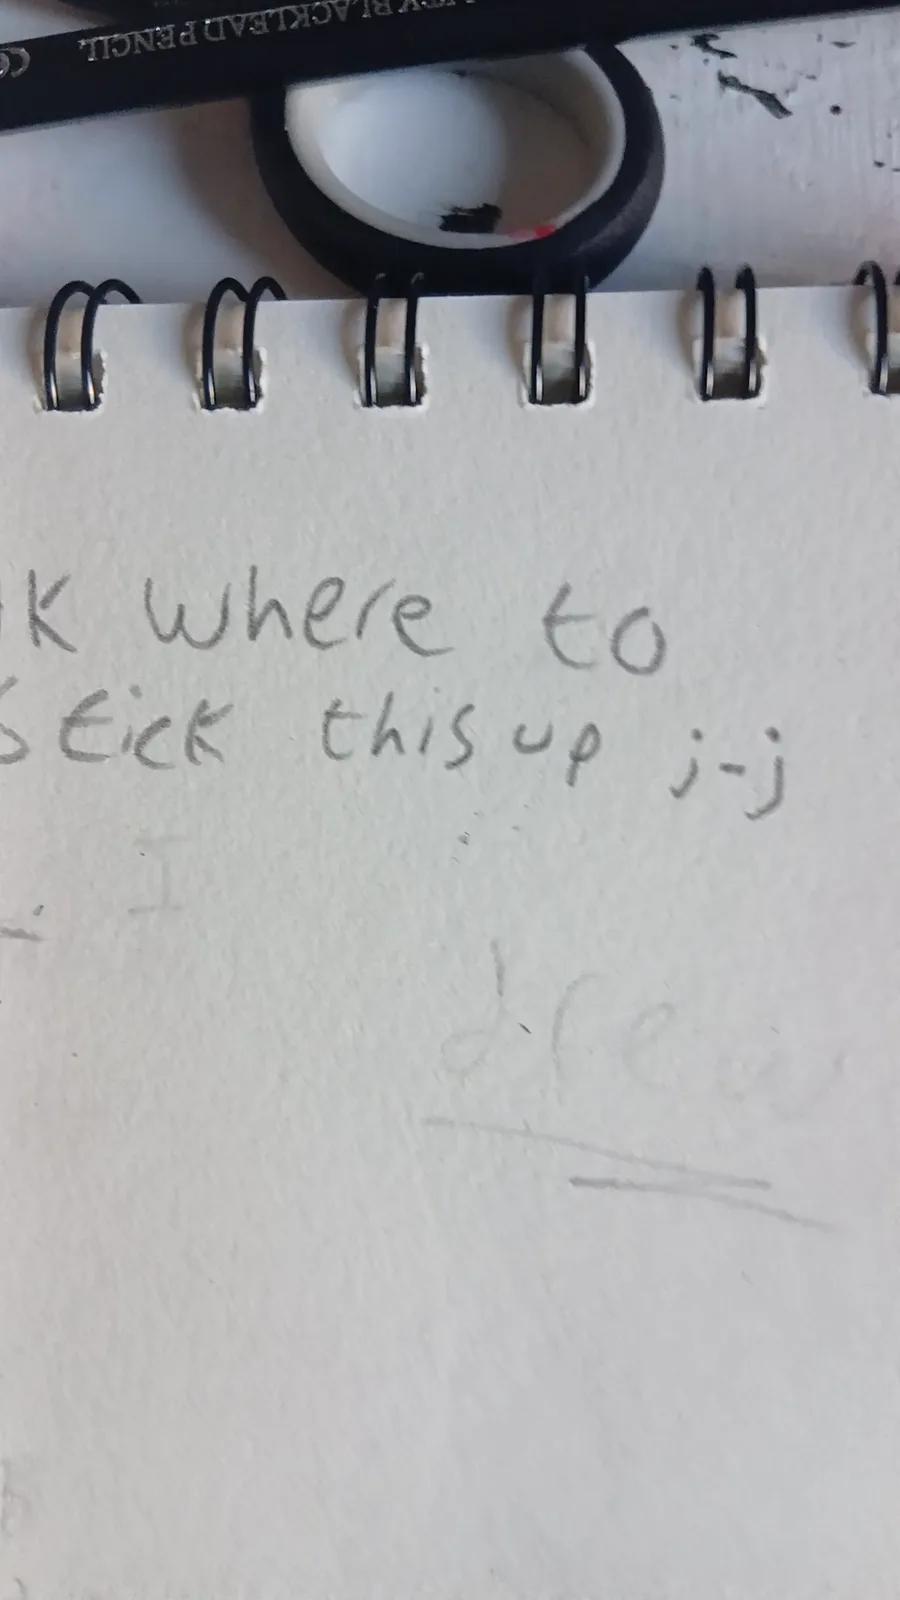 BLACKLEAD PENCIL
k where to
stick this up j-j
I
drew